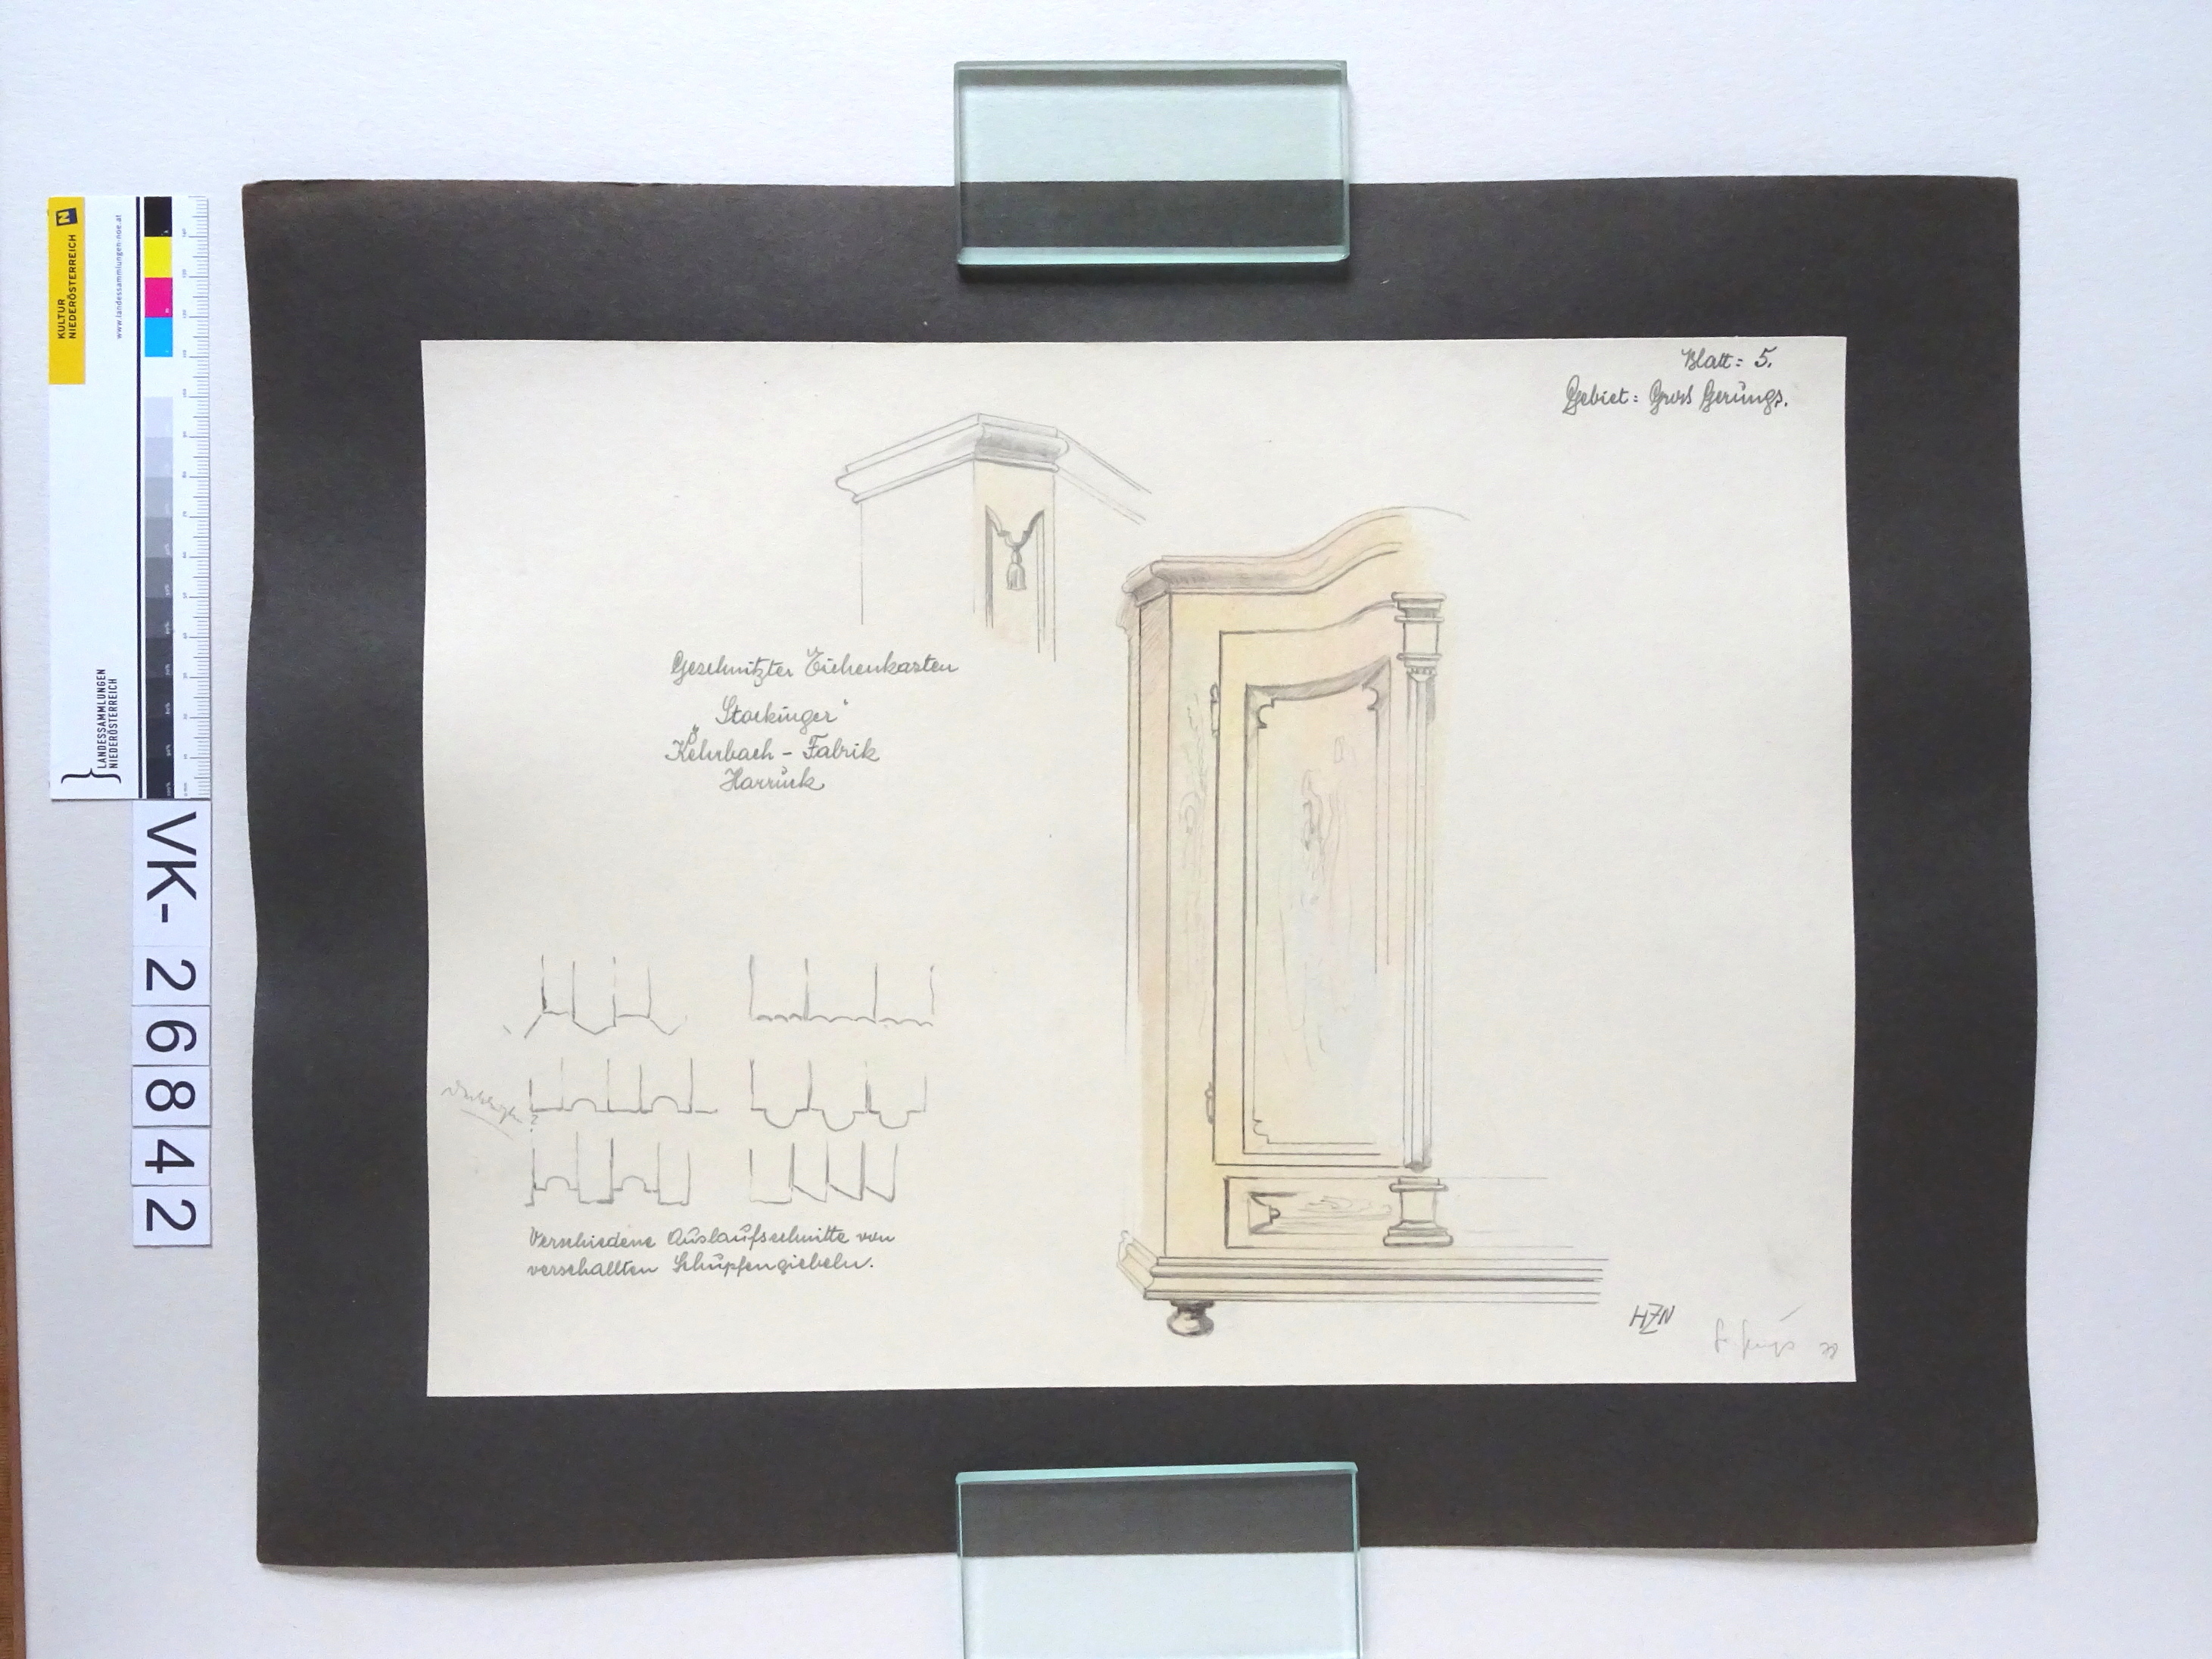 Blatt: 5.
Gebiet: Gross Gerungs.
Geschnitzter Eichenkasten
"Stockinger"
Kehrbach - Fabrik
Harruck
Verschiedene Auslaufsschnitte von
verschallten Schupfengiebeln.
HZN
KULTUR
NIEDERÖSTERREICH
N
www.landessammlungen-noe.at
LANDESSAMMLUNGEN
NIEDERÖSTERREICH
VK-26842